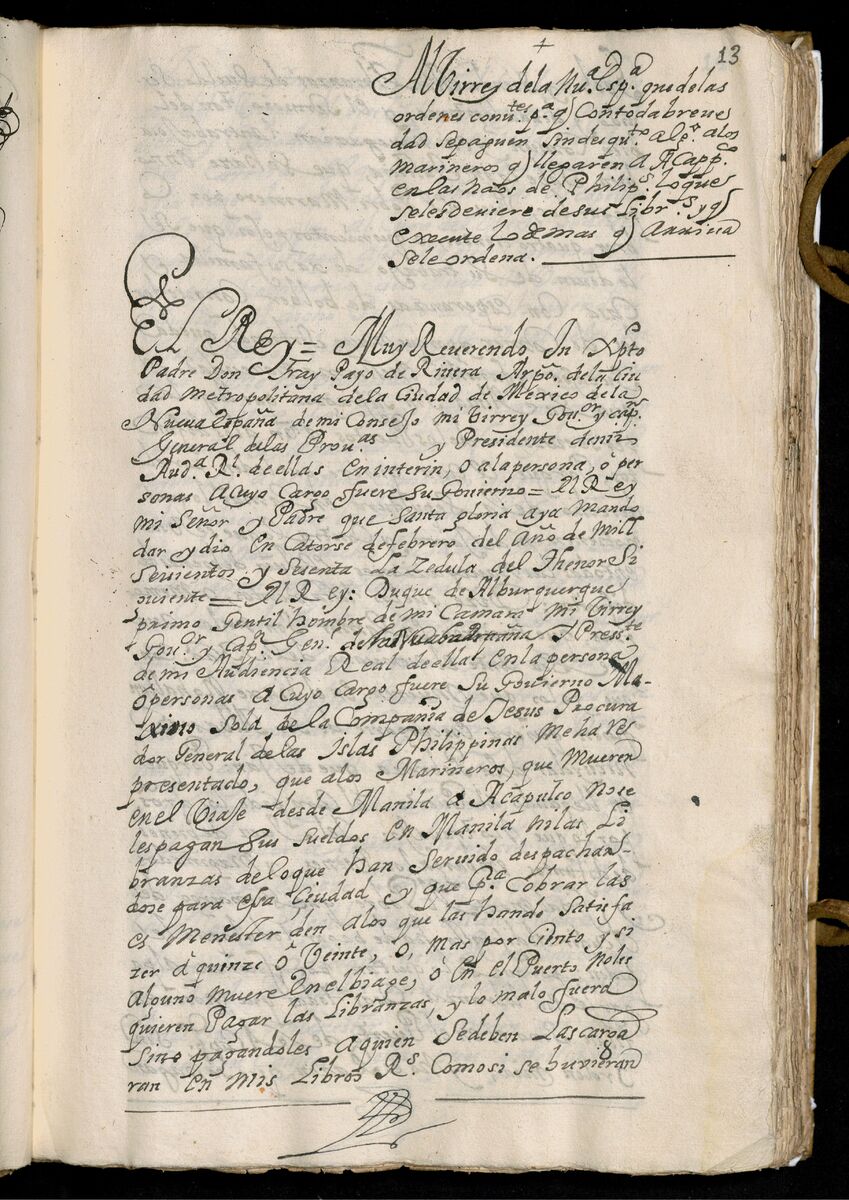 13
+
Al Virrey dela Nu.ª Esp.ª que de las
ordenes conv.tes p.ª q) Contoda breve
dad sepaguen sindesqu.to alg.º alos
marineros q) llegaren A Acapp.co
en las naos de Philip.s loque
selesdeviere desus Libr.s y q)
execute lo demas q) Arriva
sele ordena.
EL Rey = Muy Reverendo In Xpto
Padre Don Fray Payo de Rivera Arpo. dela Ciu
dad metropolitana dela Ciudad de Mexico dela
Nueva españa demi Consejo mi Virrey Gov.or y cap.n
General delas Prov.as y Presidente demi
Aud.ª R.l de ellas en interin, o ala persona, ó per
sonas a cuyo Cargo fuere Su Govierno = El Rey
mi Señor y Padre que Santa gloria aya mando
dar y dio en Catorse defebrero del Año de mill
Seisientos y Sesenta La Zedula del thenor Si
guiente = El Rey: Duque de Alburquerque
primo Gentil hombre de mi Camara mi Virrey
Gov.or y Cap.n Gen.l de la Press.te
de mi Audiencia Real de ella en la persona
ó personas a Cuyo Cargo fuere Su Govierno Ma-
ximo Sola de la Compañia de Jesus Procura
dor General de las Islas Philippinas meha res
presentado, que alos Marineros, que mueren
en el Viaje desde Manila a Acapulco nose
lespagan Sus Sueldos en Manila nilas Li
branzas deloque han Servido despachan-
dose para essa Ciudad y que p.ª Cobrar las
es menester den alos que las hande Satisfa
zer á quinze ó Veinte, o, mas por ciento y si
alguno muere en el biage, ó en el Puerto noles
quieren Pagar las Libranzas, y lo malo fuera
Sino pagandoles aquien Sedeben Lascarga
ran en mis Libros R.s Comosi se huvieran